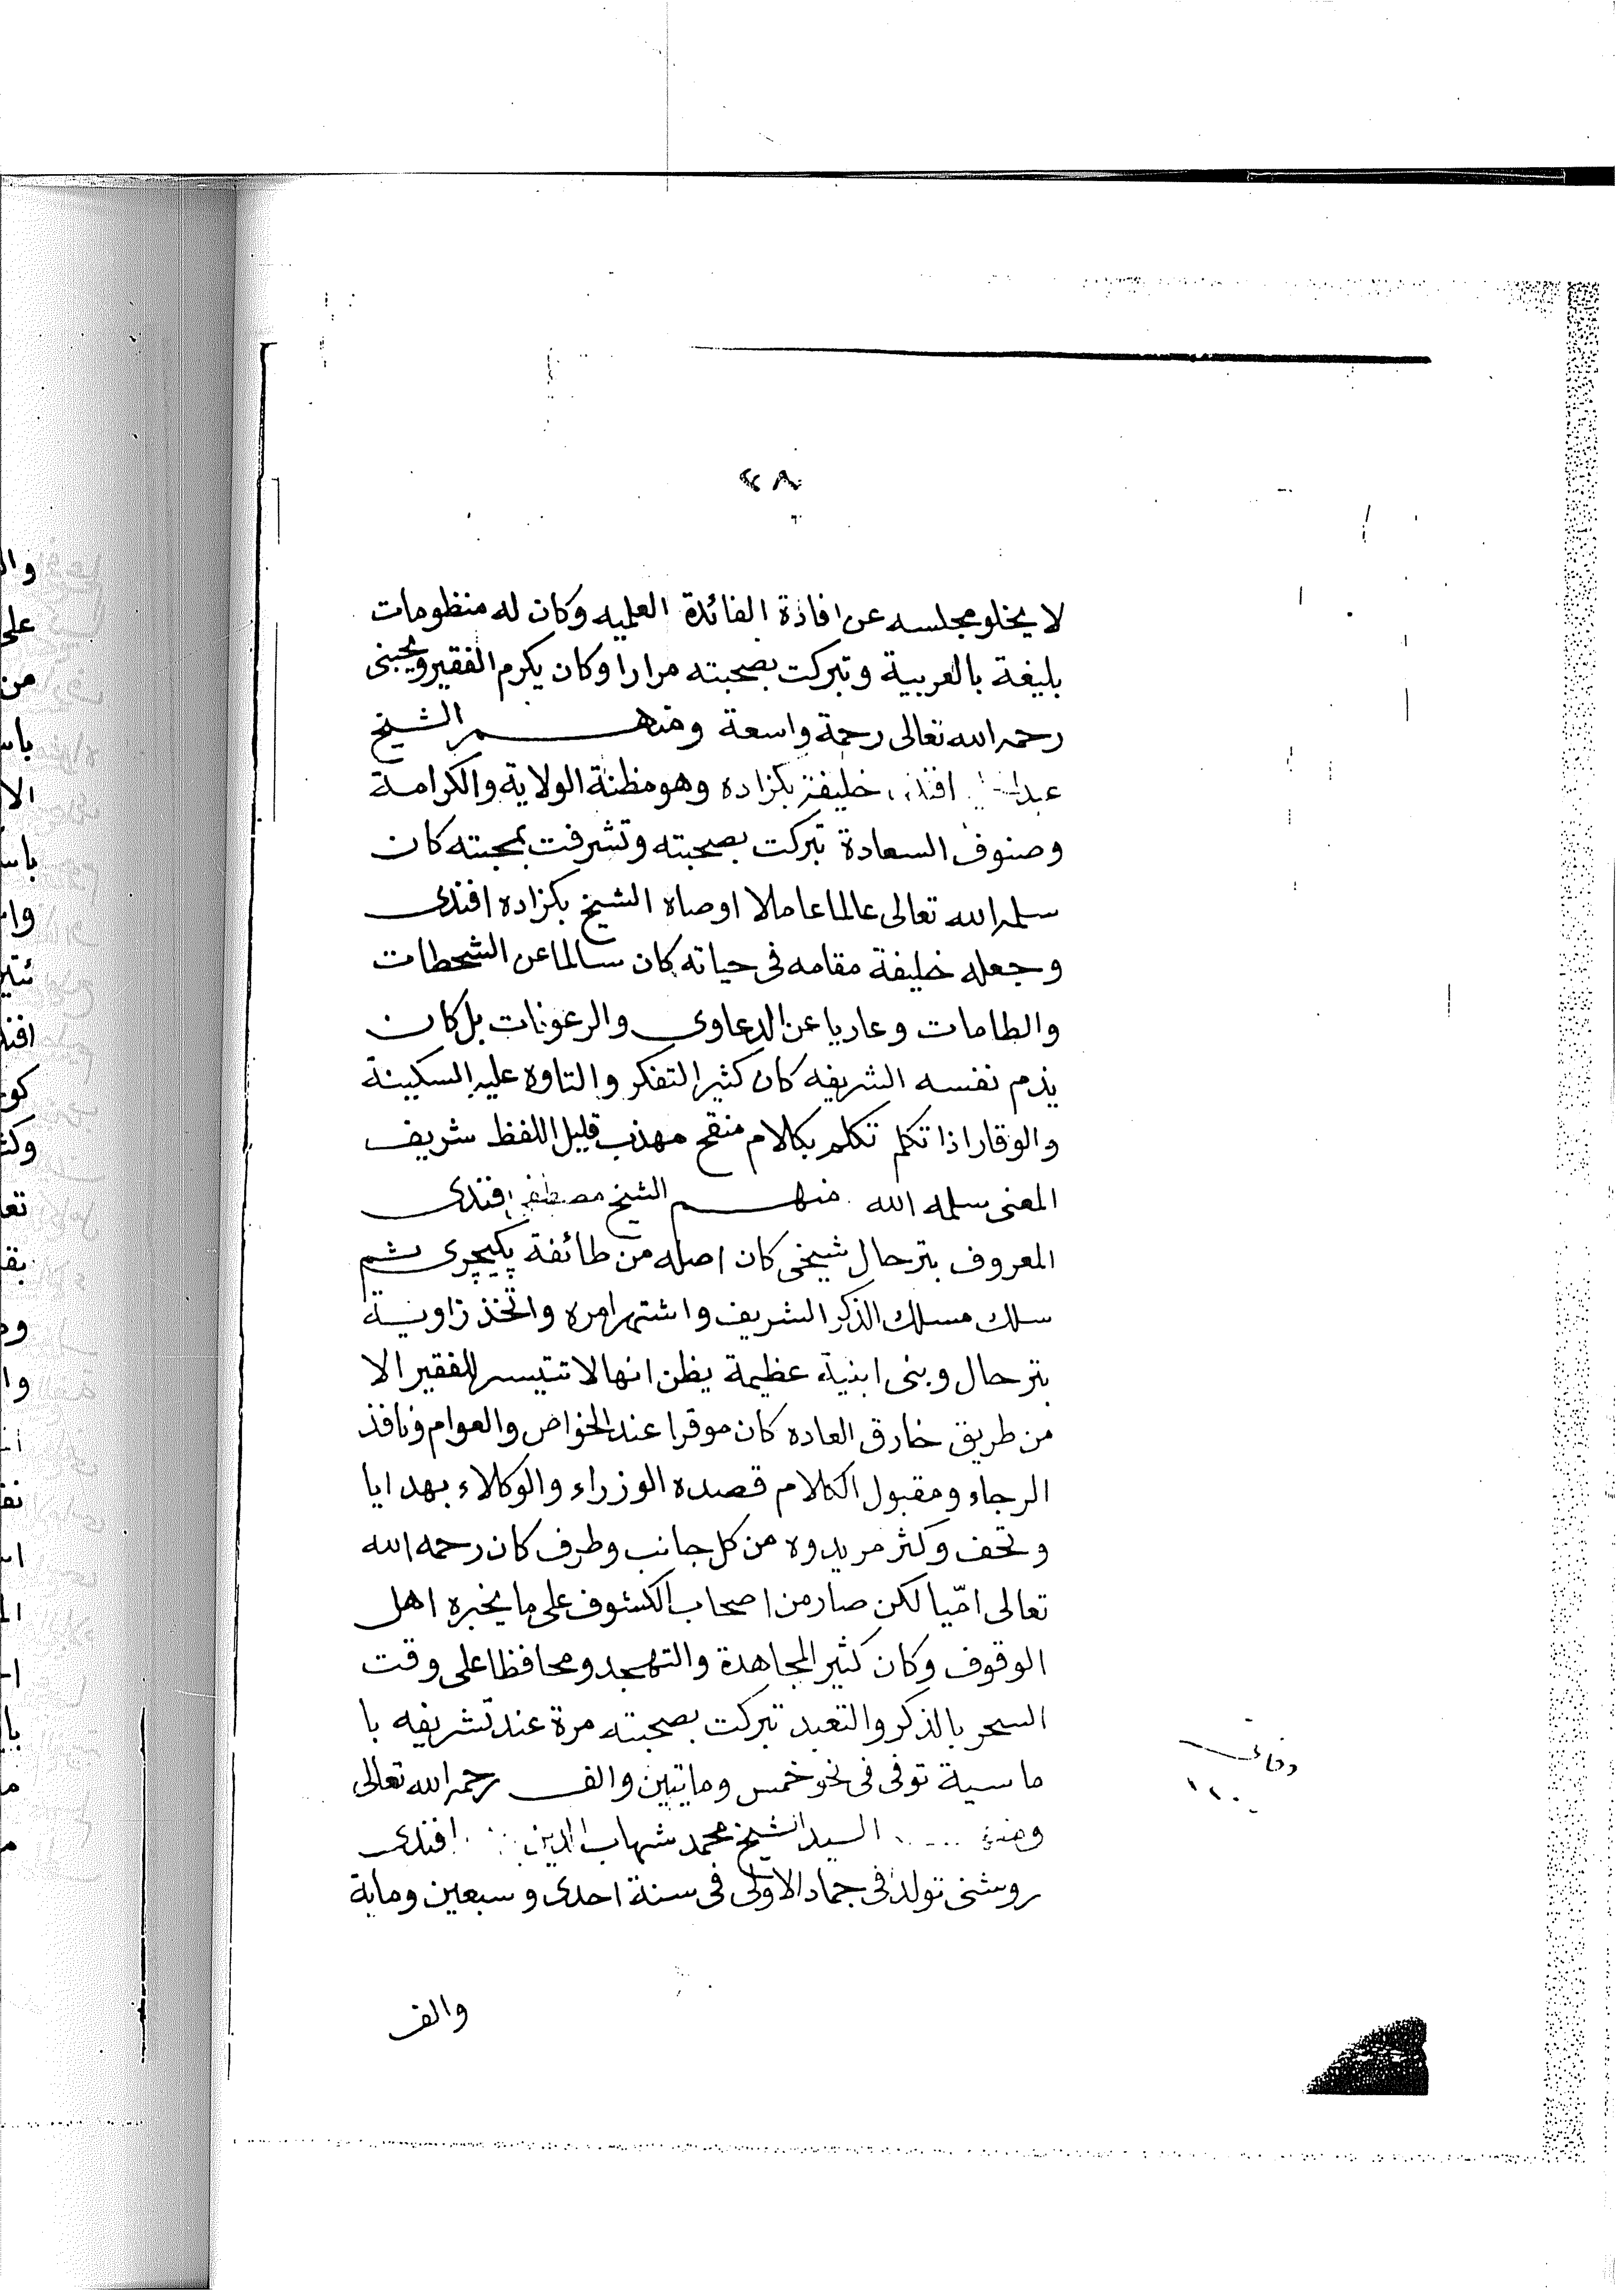 ٢٨
لا يخلو مجلسه عن افادة الفائدة العلميه وكان له منظومات
بليغة بالعربية وتبركت بصحبته مرارا وكان يكرم الفقير ويحبنى
رحمه الله تعالى رحمة واسعة ومنهم الشيخ
افندى خليفة بكزاده وهو مظنة الولاية والكرامة
وصنوف السعادة تبركت بصحبته وتشرفت بمحبته كان
سلمه الله تعالى عالما عاملا اوصاه الشيخ بكزاده افندى
وجعله خليفة مقامه فى حياته كان سالما عن الشحطات
والطامات وعاريا عن الدعاوى والرعونات بل كان
يذم نفسه الشريفه كان كثير التفكر والتاوه عليه السكينة
والوقار اذا تكلم تكلم بكلام منقح مهذب قليل اللفظ شريف
المعنى سلمه الله منهم الشيخ مصطفى افندى
المعروف بترحال شيخى كان اصله من طائفة يكيچرى ثم
سلك مسلك الذكر الشريف واشتهر امره واتخذ زاوية
بترحال وبنى ابنية عظيمة يظن انها لا تتيسر للفقير الا
من طريق خارق العاده كان موقرا عند الخواص والعوام ونافذ
الرجاء ومقبول الكلام قصده الوزراء والوكلاء بهدايا
وتحف وكثر مريدوه من كل جانب وطرف كان رحمه الله
تعالى امّيا لكن صار من اصحاب الكشوف على ما يخبره اهل
الوقوف وكان كثير المجاهدة والتهجد ومحافظا على وقت
السحر بالذكر والتعبد تبركت بصحبته مرة عند تشريفه با
ماسية توفى فى نحو خمس ومايتين والف رحمه الله تعالى
السيد الشيخ محمد شهاب الدين افندى
روشنى تولد فى جماد الاولى فى سنة احدى وسبعين وماية
والف